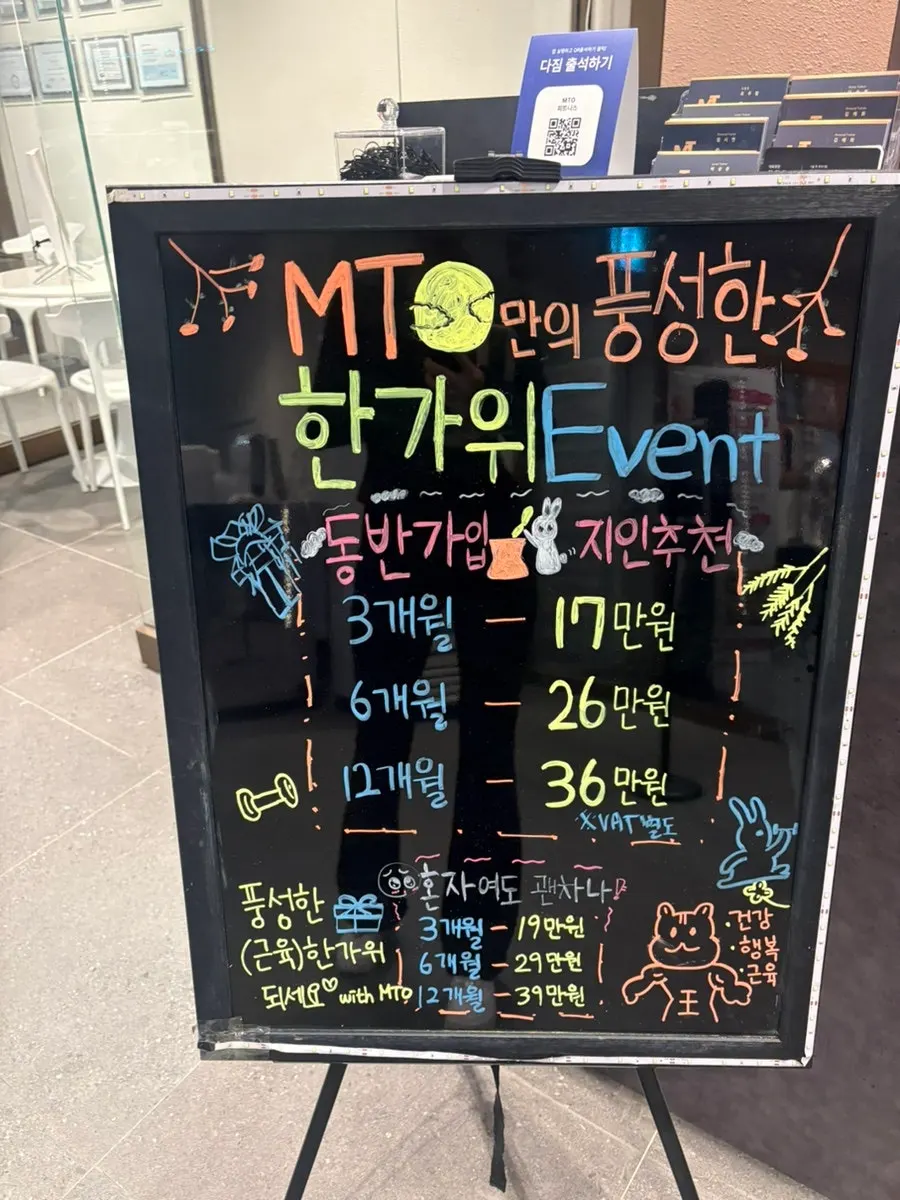 다짐 출석하기
MTO
피트니스
MTO만의 풍성한
한가위 Event
동반가입 지인추천
3개월 - 17만원
6개월 - 26만원
12개월 - 36만원
※VAT 별도
혼자여도 괜차나
3개월 - 19만원
6개월 - 29만원
12개월 - 39만원
풍성한
(근육)한가위
되세요♡ with MTO
·건강
·행복
·근육
王